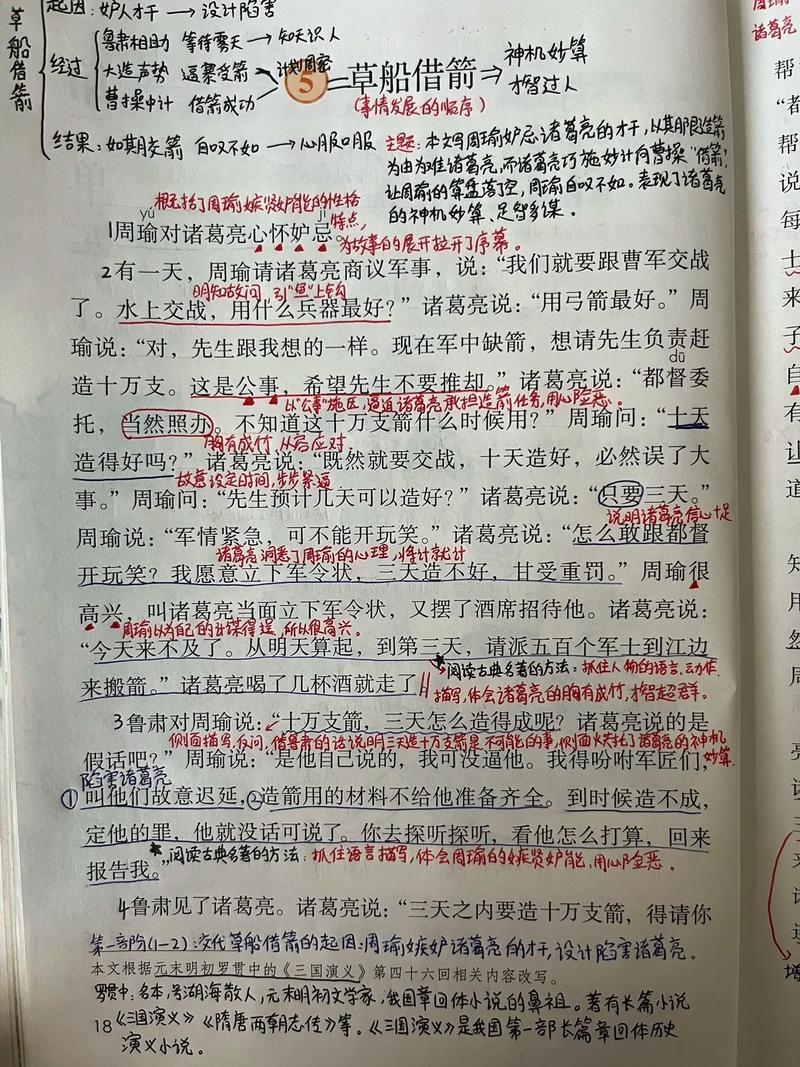 草船借箭
起因:妒人才干→设计陷害
经过
鲁肃相助 等待雾天→知天识人
大造声势 逼寨受箭
计划周密
曹操中计 借箭成功
结果:如期交箭 自叹不如→心服口服
5 草船借箭
(事情发展的顺序)
神机妙算
才智过人
主题:本文写周瑜妒忌诸葛亮的才干,以其即限造箭
为由为难诸葛亮,而诸葛亮巧施妙计向曹操“借箭”,
让周瑜的算盘落了空,周瑜自叹不如。表现了诸葛亮
的神机妙算、足智多谋。
概括了周瑜嫉贤妒能的性格
特点,
为故事的展开拉开了序幕。
yú jì
1周瑜对诸葛亮心怀妒忌。
2有一天,周瑜请诸葛亮商议军事,说:“我们就要跟曹军交战
明知故问,引“鱼”上钩
了。水上交战,用什么兵器最好?”诸葛亮说:“用弓箭最好。”周
瑜说:“对,先生跟我想的一样。现在军中缺箭,想请先生负责赶
dū
造十万支。这是公事,希望先生不要推却。”诸葛亮说:“都督委
以“公事”施压,逼迫诸葛亮承担造箭任务,用心险恶。
托,当然照办。不知道这十万支箭什么时候用?”周瑜问:“十天
胸有成竹,从容应对
造得好吗?”诸葛亮说:“既然就要交战,十天造好,必然误了大
故意设定时间,步步紧逼
事。”周瑜问:“先生预计几天可以造好?”诸葛亮说:“只要三天。”
说明诸葛亮信心十足
周瑜说:“军情紧急,可不能开玩笑。”诸葛亮说:“怎么敢跟都督
诸葛亮洞悉了周瑜的心理,将计就计
开玩笑?我愿意立下军令状,三天造不好,甘受重罚。”周瑜很
高兴,叫诸葛亮当面立下军令状,又摆了酒席招待他。诸葛亮说:
周瑜以为自己的计谋得逞,所以很高兴。
“今天来不及了。从明天算起,到第三天,请派五百个军士到江边
阅读古典名著的方法:抓住人物的语言、动作
来搬箭。”诸葛亮喝了几杯酒就走了
描写,体会诸葛亮的胸有成竹,才智超群。
3鲁肃对周瑜说:“十万支箭,三天怎么造得成呢?诸葛亮说的是
侧面描写,反问,借鲁肃的话说明三天造十万支箭是不可能的事,侧面烘托了诸葛亮的神机
妙算.
假话吧?”周瑜说:“是他自己说的,我可没逼他。我得吩咐军匠们,
陷害诸葛亮
①叫他们故意迟延,②造箭用的材料不给他准备齐全。到时候造不成,
定他的罪,他就没话可说了。你去探听探听,看他怎么打算,回来
报告我。”
阅读古典名著的方法:抓住语言描写,体会周瑜的嫉贤妒能、用心险恶。
4鲁肃见了诸葛亮。诸葛亮说:“三天之内要造十万支箭,得请你
第一部分(1-2):交代草船借箭的起因:周瑜嫉妒诸葛亮的才干,设计陷害诸葛亮。
本文根据元末明初罗贯中的《三国演义》第四十六回相关内容改写。
罗贯中:名本,号湖海散人,元末明初文学家,我国章回体小说的鼻祖。著有长篇小说
18《三国演义》《隋唐两朝志传》等。《三国演义》是我国第一部长篇章回体历史
演义小说。